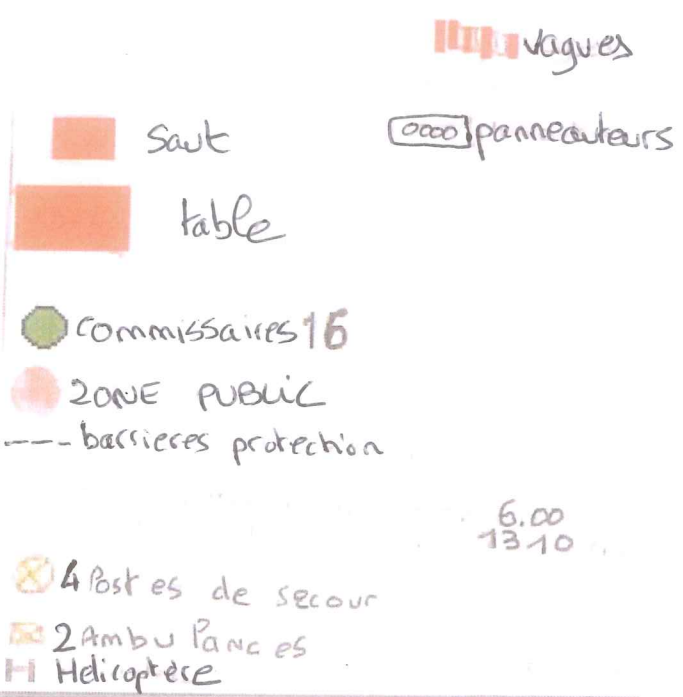 vagues
saut
0000 panneauteurs
table
commissaires 16
ZONE PUBLIC
barrieres protection
6.00
1310
4 Postes de secour
2 Ambulances
H Helicoptère